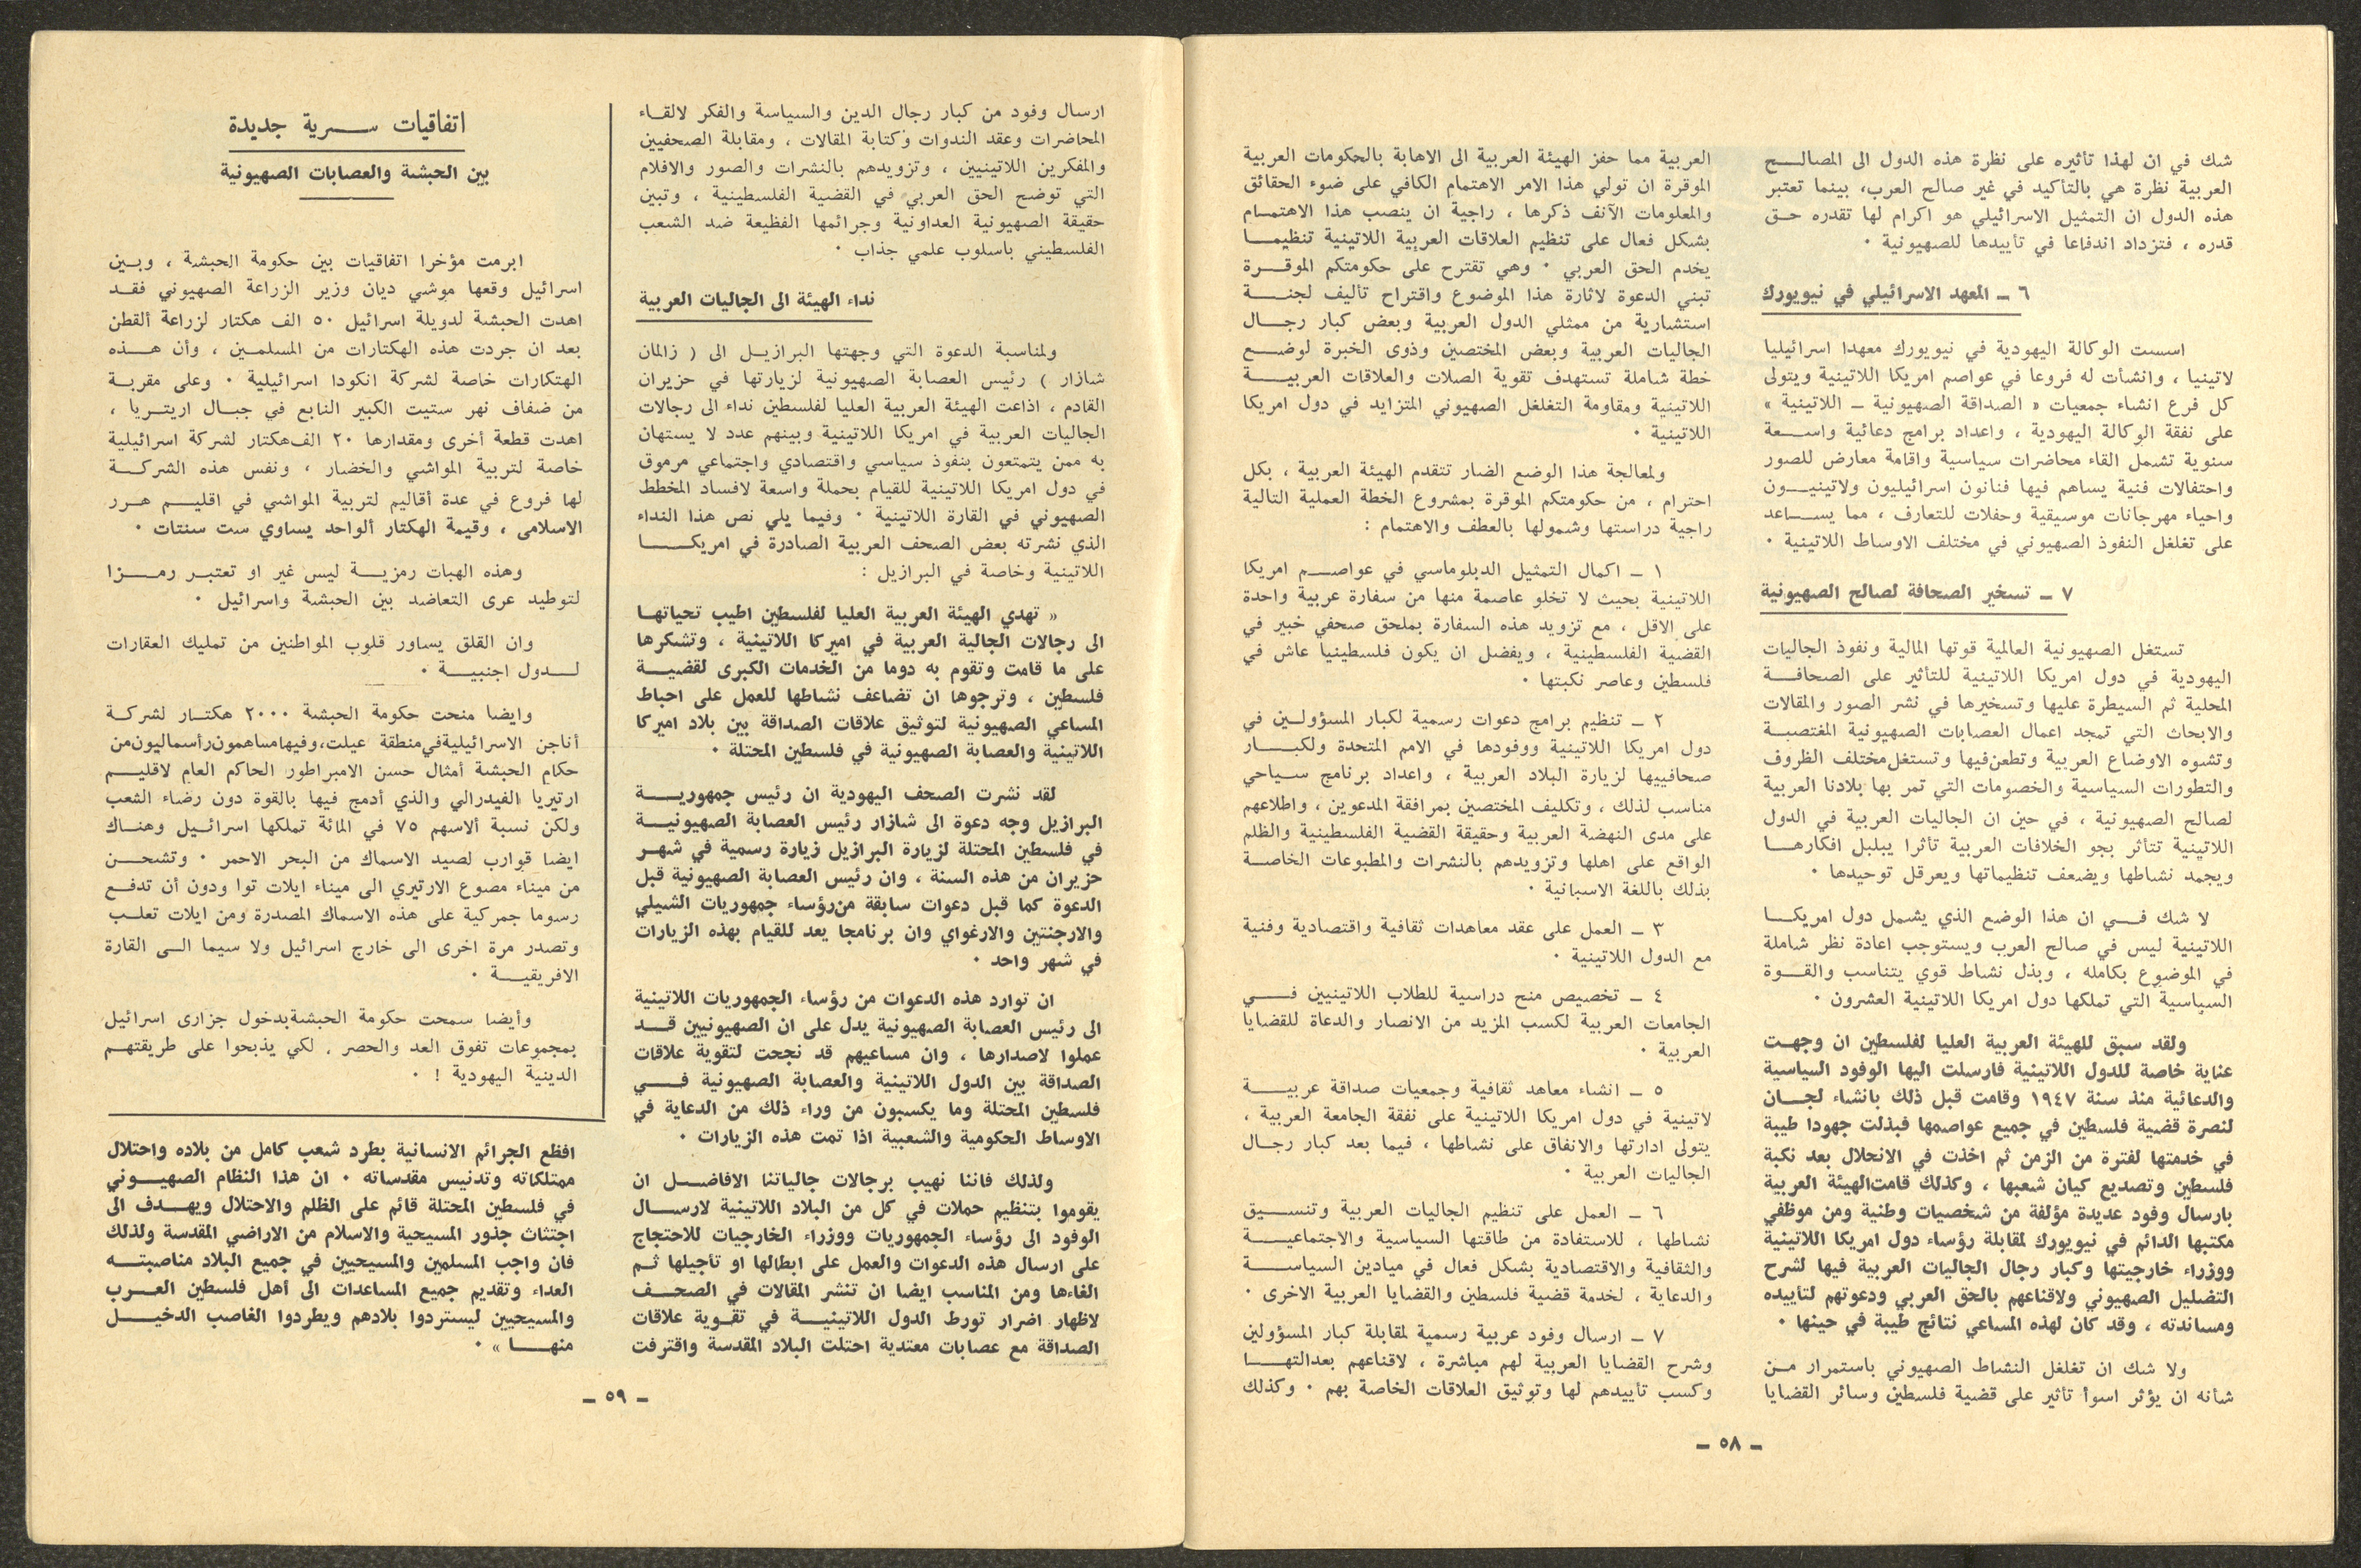 شك في ان لهذا تأثيره على نظرة هذه الدول الى المصالح
العربية نظرة هي بالتأكيد في غير صالح العرب، بينما تعتبر
هذه الدول ان التمثيل الاسرائيلي هو اكرام لها تقدره حق
قدره ، فتزداد اندفاعا في تأييدها للصهيونية .
٦ ـ المعهد الاسرائيلي في نيويورك
اسست الوكالة اليهودية في نيويورك معهدا اسرائيليا
لاتينيا ، وانشأت له فروعا في عواصم امريكا اللاتينية ويتولى
كل فرع انشاء جمعيات « الصداقة الصهيونية ـ اللاتينية »
على نفقة الوكالة اليهودية ، واعداد برامج دعائية واسعة
سنوية تشمل القاء محاضرات سياسية واقامة معارض للصور
واحتفالات فنية يساهم فيها فنانون اسرائيليون ولاتينيون
واحياء مهرجانات موسيقية وحفلات للتعارف ، مما يساعد
على تغلغل النفوذ الصهيوني في مختلف الاوساط اللاتينية .
٧ ـ تسخير الصحافة لصالح الصهيونية
تستغل الصهيونية العالمية قوتها المالية ونفوذ الجاليات
اليهودية في دول امريكا اللاتينية للتأثير على الصحافة
المحلية ثم السيطرة عليها وتسخيرها في نشر الصور والمقالات
والابحاث التي تمجد اعمال العصابات الصهيونية المغتصبة
وتشوه الاوضاع العربية وتطعن فيها وتستغل مختلف الظروف
والتطورات السياسية والخصومات التي تمر بها بلادنا العربية
لصالح الصهيونية ، في حين ان الجاليات العربية في الدول
اللاتينية تتأثر بجو الخلافات العربية تأثرا يبلبل افكارها
ويجمد نشاطها ويضعف تنظيماتها ويعرقل توحيدها .
لا شك في ان هذا الوضع الذي يشمل دول امريكا
اللاتينية ليس في صالح العرب ويستوجب اعادة نظر شاملة
في الموضوع بكامله ، وبذل نشاط قوي يتناسب والقوة
السياسية التي تملكها دول امريكا اللاتينية العشرون .
ولقد سبق للهيئة العربية العليا لفلسطين ان وجهت
عناية خاصة للدول اللاتينية فارسلت اليها الوفود السياسية
والدعائية منذ سنة ١٩٤٧ وقامت قبل ذلك بانشاء لجان
لنصرة قضية فلسطين في جميع عواصمها فبذلت جهودا طيبة
في خدمتها لفترة من الزمن ثم اخذت في الانحلال بعد نكبة
فلسطين وتصديع كيان شعبها ، وكذلك قامت الهيئة العربية
بارسال وفود عديدة مؤلفة من شخصيات وطنية ومن موظفي
مكتبها الدائم في نيويورك لمقابلة رؤساء دول امريكا اللاتينية
ووزراء خارجيتها وكبار رجال الجاليات العربية فيها لشرح
التضليل الصهيوني ولاقناعهم بالحق العربي ودعوتهم لتأييده
ومساندته ، وقد كان لهذه المساعي نتائج طيبة في حينها .
ولا شك ان تغلغل النشاط الصهيوني باستمرار من
شأنه ان يؤثر اسوأ تأثير على قضية فلسطين وسائر القضايا
العربية مما حفز الهيئة العربية الى الاهابة بالحكومات العربية
الموقرة ان تولي هذا الامر الاهتمام الكافي على ضوء الحقائق
والمعلومات الآنف ذكرها ، راجية ان ينصب هذا الاهتمام
بشكل فعال على تنظيم العلاقات العربية اللاتينية تنظيما
يخدم الحق العربي . وهي تقترح على حكومتكم الموقرة
تبني الدعوة لاثارة هذا الموضوع واقتراح تأليف لجنة
استشارية من ممثلي الدول العربية وبعض كبار رجال
الجاليات العربية وبعض المختصين وذوى الخبرة لوضع
خطة شاملة تستهدف تقوية الصلات والعلاقات العربية
اللاتينية ومقاومة التغلغل الصهيوني المتزايد في دول امريكا
اللاتينية .
ولمعالجة هذا الوضع الضار تتقدم الهيئة العربية ، بكل
احترام ، من حكومتكم الموقرة بمشروع الخطة العملية التالية
راجية دراستها وشمولها بالعطف والاهتمام :
١ ـ اكمال التمثيل الدبلوماسي في عواصم امريكا
اللاتينية بحيث لا تخلو عاصمة منها من سفارة عربية واحدة
على الاقل ، مع تزويد هذه السفارة بملحق صحفي خبير في
القضية الفلسطينية ، ويفضل ان يكون فلسطينيا عاش في
فلسطين وعاصر نكبتها .
٢ ـ تنظيم برامج دعوات رسمية لكبار المسؤولين في
دول امريكا اللاتينية ووفودها في الامم المتحدة ولكبار
صحافييها لزيارة البلاد العربية ، واعداد برنامج سياحي
مناسب لذلك ، وتكليف المختصين بمرافقة المدعوين ، واطلاعهم
على مدى النهضة العربية وحقيقة القضية الفلسطينية والظلم
الواقع على اهلها وتزويدهم بالنشرات والمطبوعات الخاصة
بذلك باللغة الاسبانية .
٣ ـ العمل على عقد معاهدات ثقافية واقتصادية وفنية
مع الدول اللاتينية .
٤ ـ تخصيص منح دراسية للطلاب اللاتينيين في
الجامعات العربية لكسب المزيد من الانصار والدعاة للقضايا
العربية .
٥ ـ انشاء معاهد ثقافية وجمعيات صداقة عربية
لاتينية في دول امريكا اللاتينية على نفقة الجامعة العربية ،
يتولى ادارتها والانفاق على نشاطها ، فيما بعد كبار رجال
الجاليات العربية .
٦ ـ العمل على تنظيم الجاليات العربية وتنسيق
نشاطها ، للاستفادة من طاقتها السياسية والاجتماعية
والثقافية والاقتصادية بشكل فعال في ميادين السياسة
والدعاية ، لخدمة قضية فلسطين والقضايا العربية الاخرى .
٧ ـ ارسال وفود عربية رسمية لمقابلة كبار المسؤولين
وشرح القضايا العربية لهم مباشرة ، لاقناعهم بعدالتها
وكسب تأييدهم لها وتوثيق العلاقات الخاصة بهم . وكذلك
ـ ٥٨ ـ
ارسال وفود من كبار رجال الدين والسياسة والفكر لالقاء
المحاضرات وعقد الندوات وكتابة المقالات ، ومقابلة الصحفيين
والمفكرين اللاتينيين ، وتزويدهم بالنشرات والصور والافلام
التي توضح الحق العربي في القضية الفلسطينية ، وتبين
حقيقة الصهيونية العداونية وجرائمها الفظيعة ضد الشعب
الفلسطيني باسلوب علمي جذاب .
نداء الهيئة الى الجاليات العربية
ولمناسبة الدعوة التي وجهتها البرازيل الى ( زالمان
شازار ) رئيس العصابة الصهيونية لزيارتها في حزيران
القادم ، اذاعت الهيئة العربية العليا لفلسطين نداء الى رجالات
الجاليات العربية في امريكا اللاتينية وبينهم عدد لا يستهان
به ممن يتمتعون بنفوذ سياسي واقتصادي واجتماعي مرموق
في دول امريكا اللاتينية للقيام بحملة واسعة لافساد المخطط
الصهيوني في القارة اللاتينية . وفيما يلي نص هذا النداء
الذي نشرته بعض الصحف العربية الصادرة في امريكا
اللاتينية وخاصة في البرازيل :
« تهدي الهيئة العربية العليا لفلسطين اطيب تحياتها
الى رجالات الجالية العربية في اميركا اللاتينية ، وتشكرها
على ما قامت وتقوم به دوما من الخدمات الكبرى لقضية
فلسطين ، وترجوها ان تضاعف نشاطها للعمل على احباط
المساعي الصهيونية لتوثيق علاقات الصداقة بين بلاد اميركا
اللاتينية والعصابة الصهيونية في فلسطين المحتلة .
لقد نشرت الصحف اليهودية ان رئيس جمهورية
البرازيل وجه دعوة الى شازار رئيس العصابة الصهيونية
في فلسطين المحتلة لزيارة البرازيل زيارة رسمية في شهر
حزيران من هذه السنة ، وان رئيس العصابة الصهيونية قبل
الدعوة كما قبل دعوات سابقة من رؤساء جمهوريات الشيلي
والارجنتين والارغواي وان برنامجا يعد للقيام بهذه الزيارات
في شهر واحد .
ان توارد هذه الدعوات من رؤساء الجمهوريات اللاتينية
الى رئيس العصابة الصهيونية يدل على ان الصهيونيين قد
عملوا لاصدارها ، وان مساعيهم قد نجحت لتقوية علاقات
الصداقة بين الدول اللاتينية والعصابة الصهيونية في
فلسطين المحتلة وما يكسبون من وراء ذلك من الدعاية في
الاوساط الحكومية والشعبية اذا تمت هذه الزيارات .
ولذلك فاننا نهيب برجالات جالياتنا الافاضل ان
يقوموا بتنظيم حملات في كل من البلاد اللاتينية لارسال
الوفود الى رؤساء الجمهوريات ووزراء الخارجيات للاحتجاج
على ارسال هذه الدعوات والعمل على ابطالها او تأجيلها ثم
الغاءها ومن المناسب ايضا ان تنشر المقالات في الصحف
لاظهار اضرار تورط الدول اللاتينية في تقوية علاقات
الصداقة مع عصابات معتدية احتلت البلاد المقدسة واقترفت
اتفاقيات سرية جديدة
بين الحبشة والعصابات الصهيونية
ابرمت مؤخرا اتفاقيات بين حكومة الحبشة ، وبين
اسرائيل وقعها موشي ديان وزير الزراعة الصهيوني فقد
اهدت الحبشة لدويلة اسرائيل ٥٠ الف هكتار لزراعة ألقطن
بعد ان جردت هذه الهكتارات من المسلمين ، وأن هذه
الهتكارات خاصة لشركة انكودا اسرائيلية . وعلى مقربة
من ضفاف نهر ستيت الكبير النابع في جبال اريتريا ،
اهدت قطعة أخرى ومقدارها ٢٠ الف هكتار لشركة اسرائيلية
خاصة لتربية المواشي والخضار ، ونفس هذه الشركة
لها فروع في عدة أقاليم لتربية المواشي في اقليم هرر
الاسلامى ، وقيمة الهكتار ألواحد يساوي ست سنتات .
وهذه الهبات رمزية ليس غير او تعتبر رمزا
لتوطيد عرى التعاضد بين الحبشة واسرائيل .
وان القلق يساور قلوب المواطنين من تمليك العقارات
لدول اجنبية .
وايضا منحت حكومة الحبشة ٢٠٠٠ هكتار لشركة
أناجن الاسرائيلية في منطقة عيلت، وفيها مساهمون رأسماليون من
حكام الحبشة أمثال حسن الامبراطور الحاكم العام لاقليم
ارتيريا الفيدرالي والذي أدمج فيها بالقوة دون رضاء الشعب
ولكن نسبة ألاسهم ٧٥ في المائة تملكها اسرائيل وهناك
ايضا قوارب لصيد الاسماك من البحر الاحمر . وتشحن
من ميناء مصوع الارتيري الى ميناء ايلات توا ودون أن تدفع
رسوما جمركية على هذه الاسماك المصدرة ومن ايلات تعلب
وتصدر مرة اخرى الى خارج اسرائيل ولا سيما الى القارة
الافريقية .
وأيضا سمحت حكومة الحبشة بدخول جزارى اسرائيل
بمجموعات تفوق العد والحصر . لكي يذبحوا على طريقتهم
الدينية اليهودية ! .
افظع الجرائم الانسانية بطرد شعب كامل من بلاده واحتلال
ممتلكاته وتدنيس مقدساته . ان هذا النظام الصهيوني
في فلسطين المحتلة قائم على الظلم والاحتلال ويهدف الى
اجتثاث جذور المسيحية والاسلام من الاراضي المقدسة ولذلك
فان واجب المسلمين والمسيحيين في جميع البلاد مناصبته
العداء وتقديم جميع المساعدات الى أهل فلسطين العرب
والمسيحيين ليستردوا بلادهم ويطردوا الغاصب الدخيل
منها » .
ـ ٥٩ ـ